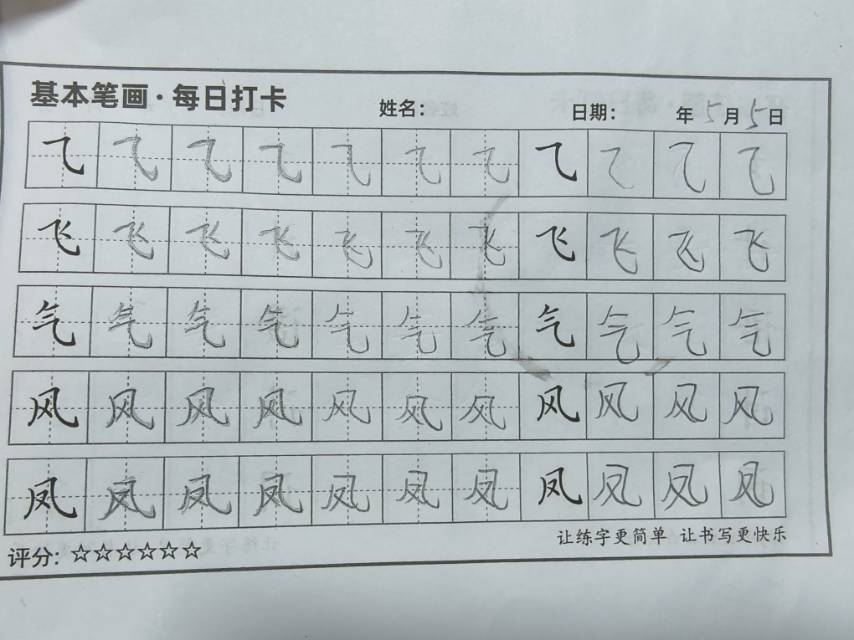 基本笔画·每日打卡 姓名： 日期： 年5月5日
⺄⺄⺄⺄⺄⺄⺄⺄⺄⺄⺄
飞飞飞飞飞飞飞飞飞飞飞
气气气气气气气气气气气
风风风风风风风风风风风
凤凤凤凤凤凤凤凤凤凤凤
让练字更简单 让书写更快乐
评分：☆☆☆☆☆☆